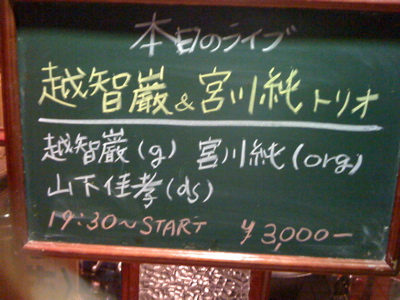 本日のライブ
越智巌&宮川純トリオ
越智巌(g) 宮川純(org)
山下佳孝(ds)
19:30~START ¥3,000-